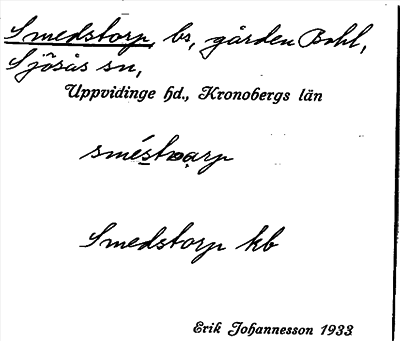 Smedstorp, bs, gården Bohl,
Sjösås sn,
Uppvidinge hd., Kronobergs län
Smedstorp kb
Erik Johannesson 1933